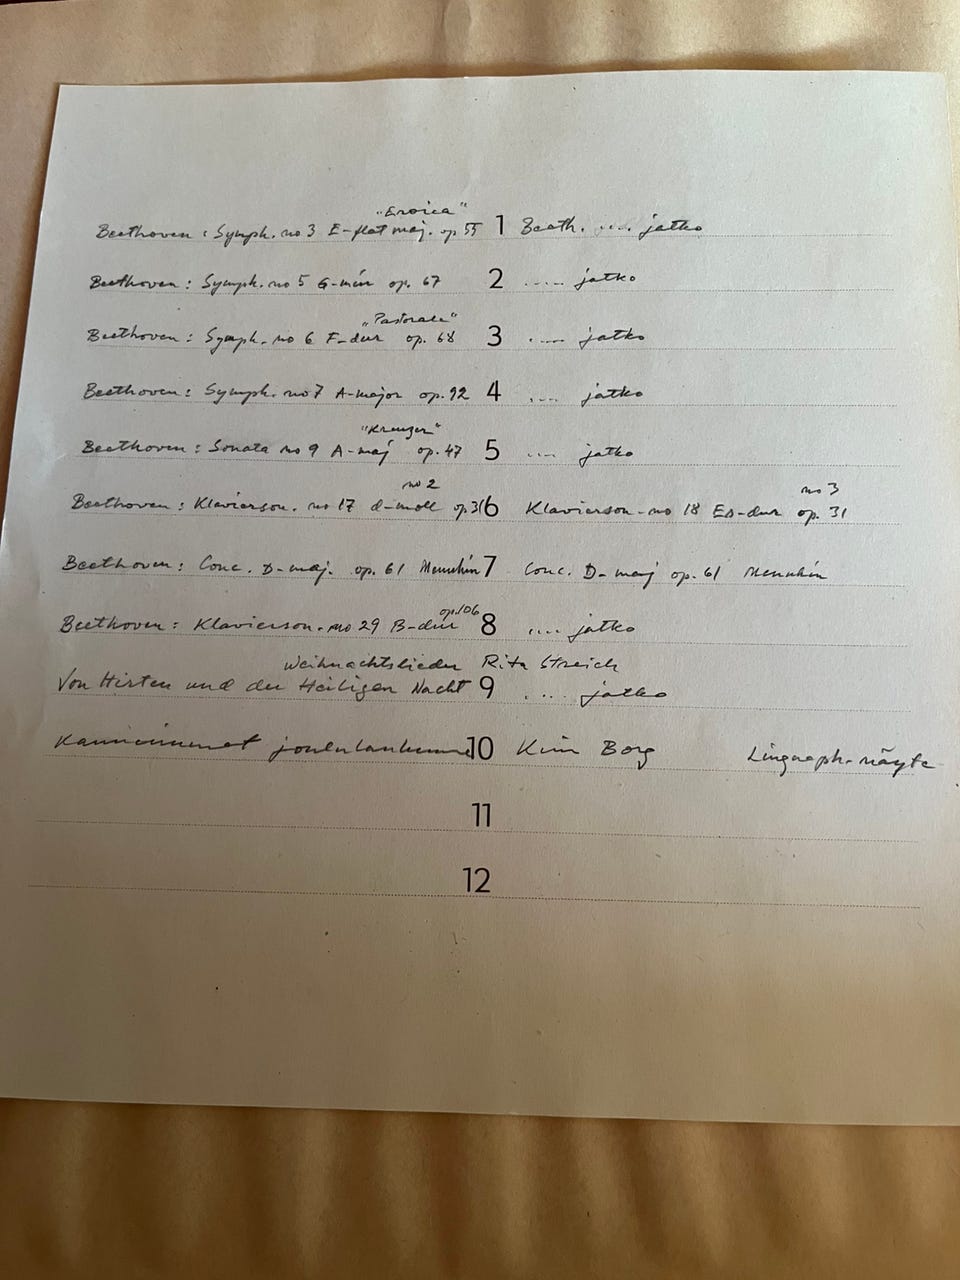 "Eroica"
Beethoven: Symph. no 3 E-flat maj. op 55 1 Beeth. .... jatko
Beethoven: Symph. no 5 G-min op. 67 2 ..... jatko
"Pastorale"
Beethoven: Symph. no 6 F-dur op. 68 3 ..... jatko
Beethoven: Symph. no 7 A-major op. 92 4 .... jatko
"Kreuzer"
Beethoven: Sonata no 9 A-maj op. 47 5 .... jatko
no 2 no 3
Beethoven: Klavierson. no 17 d-moll op.31 6 Klavierson. no 18 Es-dur op. 31
Beethoven: Conc. D-maj. op. 61 Menuhin 7 Conc. D-maj op. 61 Menuhin
op.106
Beethoven: Klavierson. no 29 B-dur 8 .... jatko
Weihnachtslieder Rita Streich
Von Hirten und der Heiligen Nacht 9 .... jatko
Kauneimmat joululaulumme 10 Kim Borg Linguaph. näyte
11
12